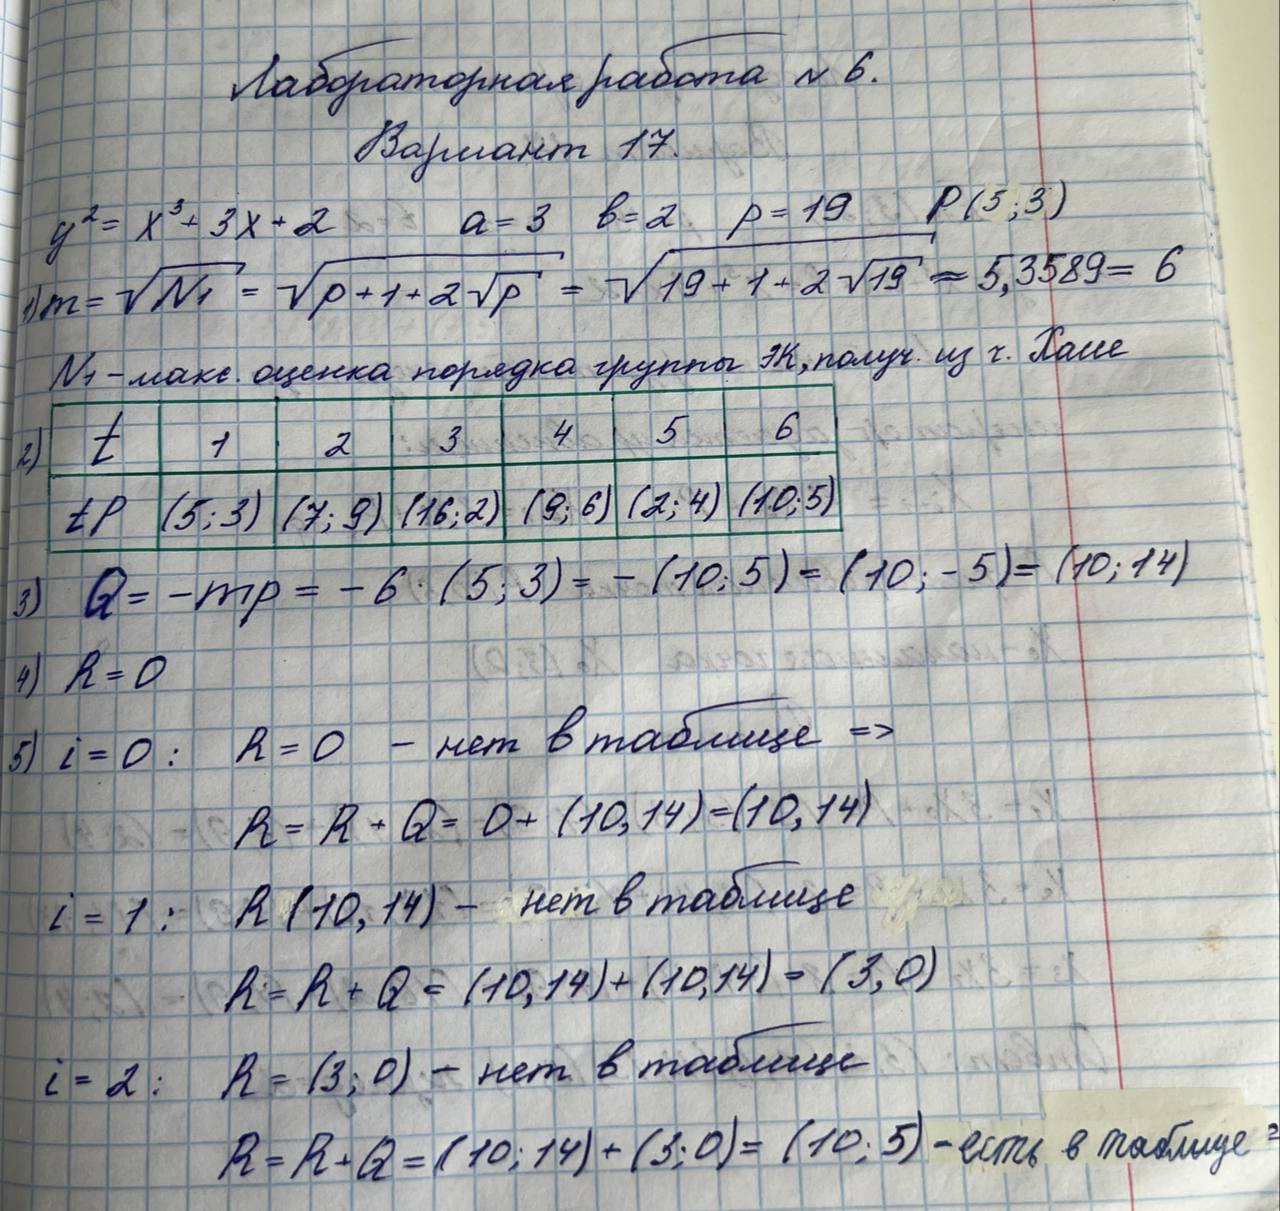 Лабораторная работа № 6.
Вариант 17.
y² = x³ + 3x + 2   a = 3   b = 2   p = 19   P(5; 3)
1) m = √N₁ = √(p + 1 + 2√p) = √(19 + 1 + 2√19) ≈ 5,3589 = 6
N₁ - макс. оценка порядка группы ЭК, получ. из т. Хассе
2) t 1 2 3 4 5 6
tP (5; 3) (7; 9) (16; 2) (9; 6) (2; 4) (10; 5)
3) Q = -mp = -6 · (5; 3) = -(10; 5) = (10; -5) = (10; 14)
4) R = 0
5) i = 0 : R = 0 - нет в таблице =>
R = R + Q = 0 + (10, 14) = (10, 14)
i = 1 : R (10, 14) - нет в таблице
R = R + Q = (10, 14) + (10, 14) = (3, 0)
i = 2 : R = (3; 0) - нет в таблице
R = R + Q = (10; 14) + (3; 0) = (10; 5) - есть в таблице =